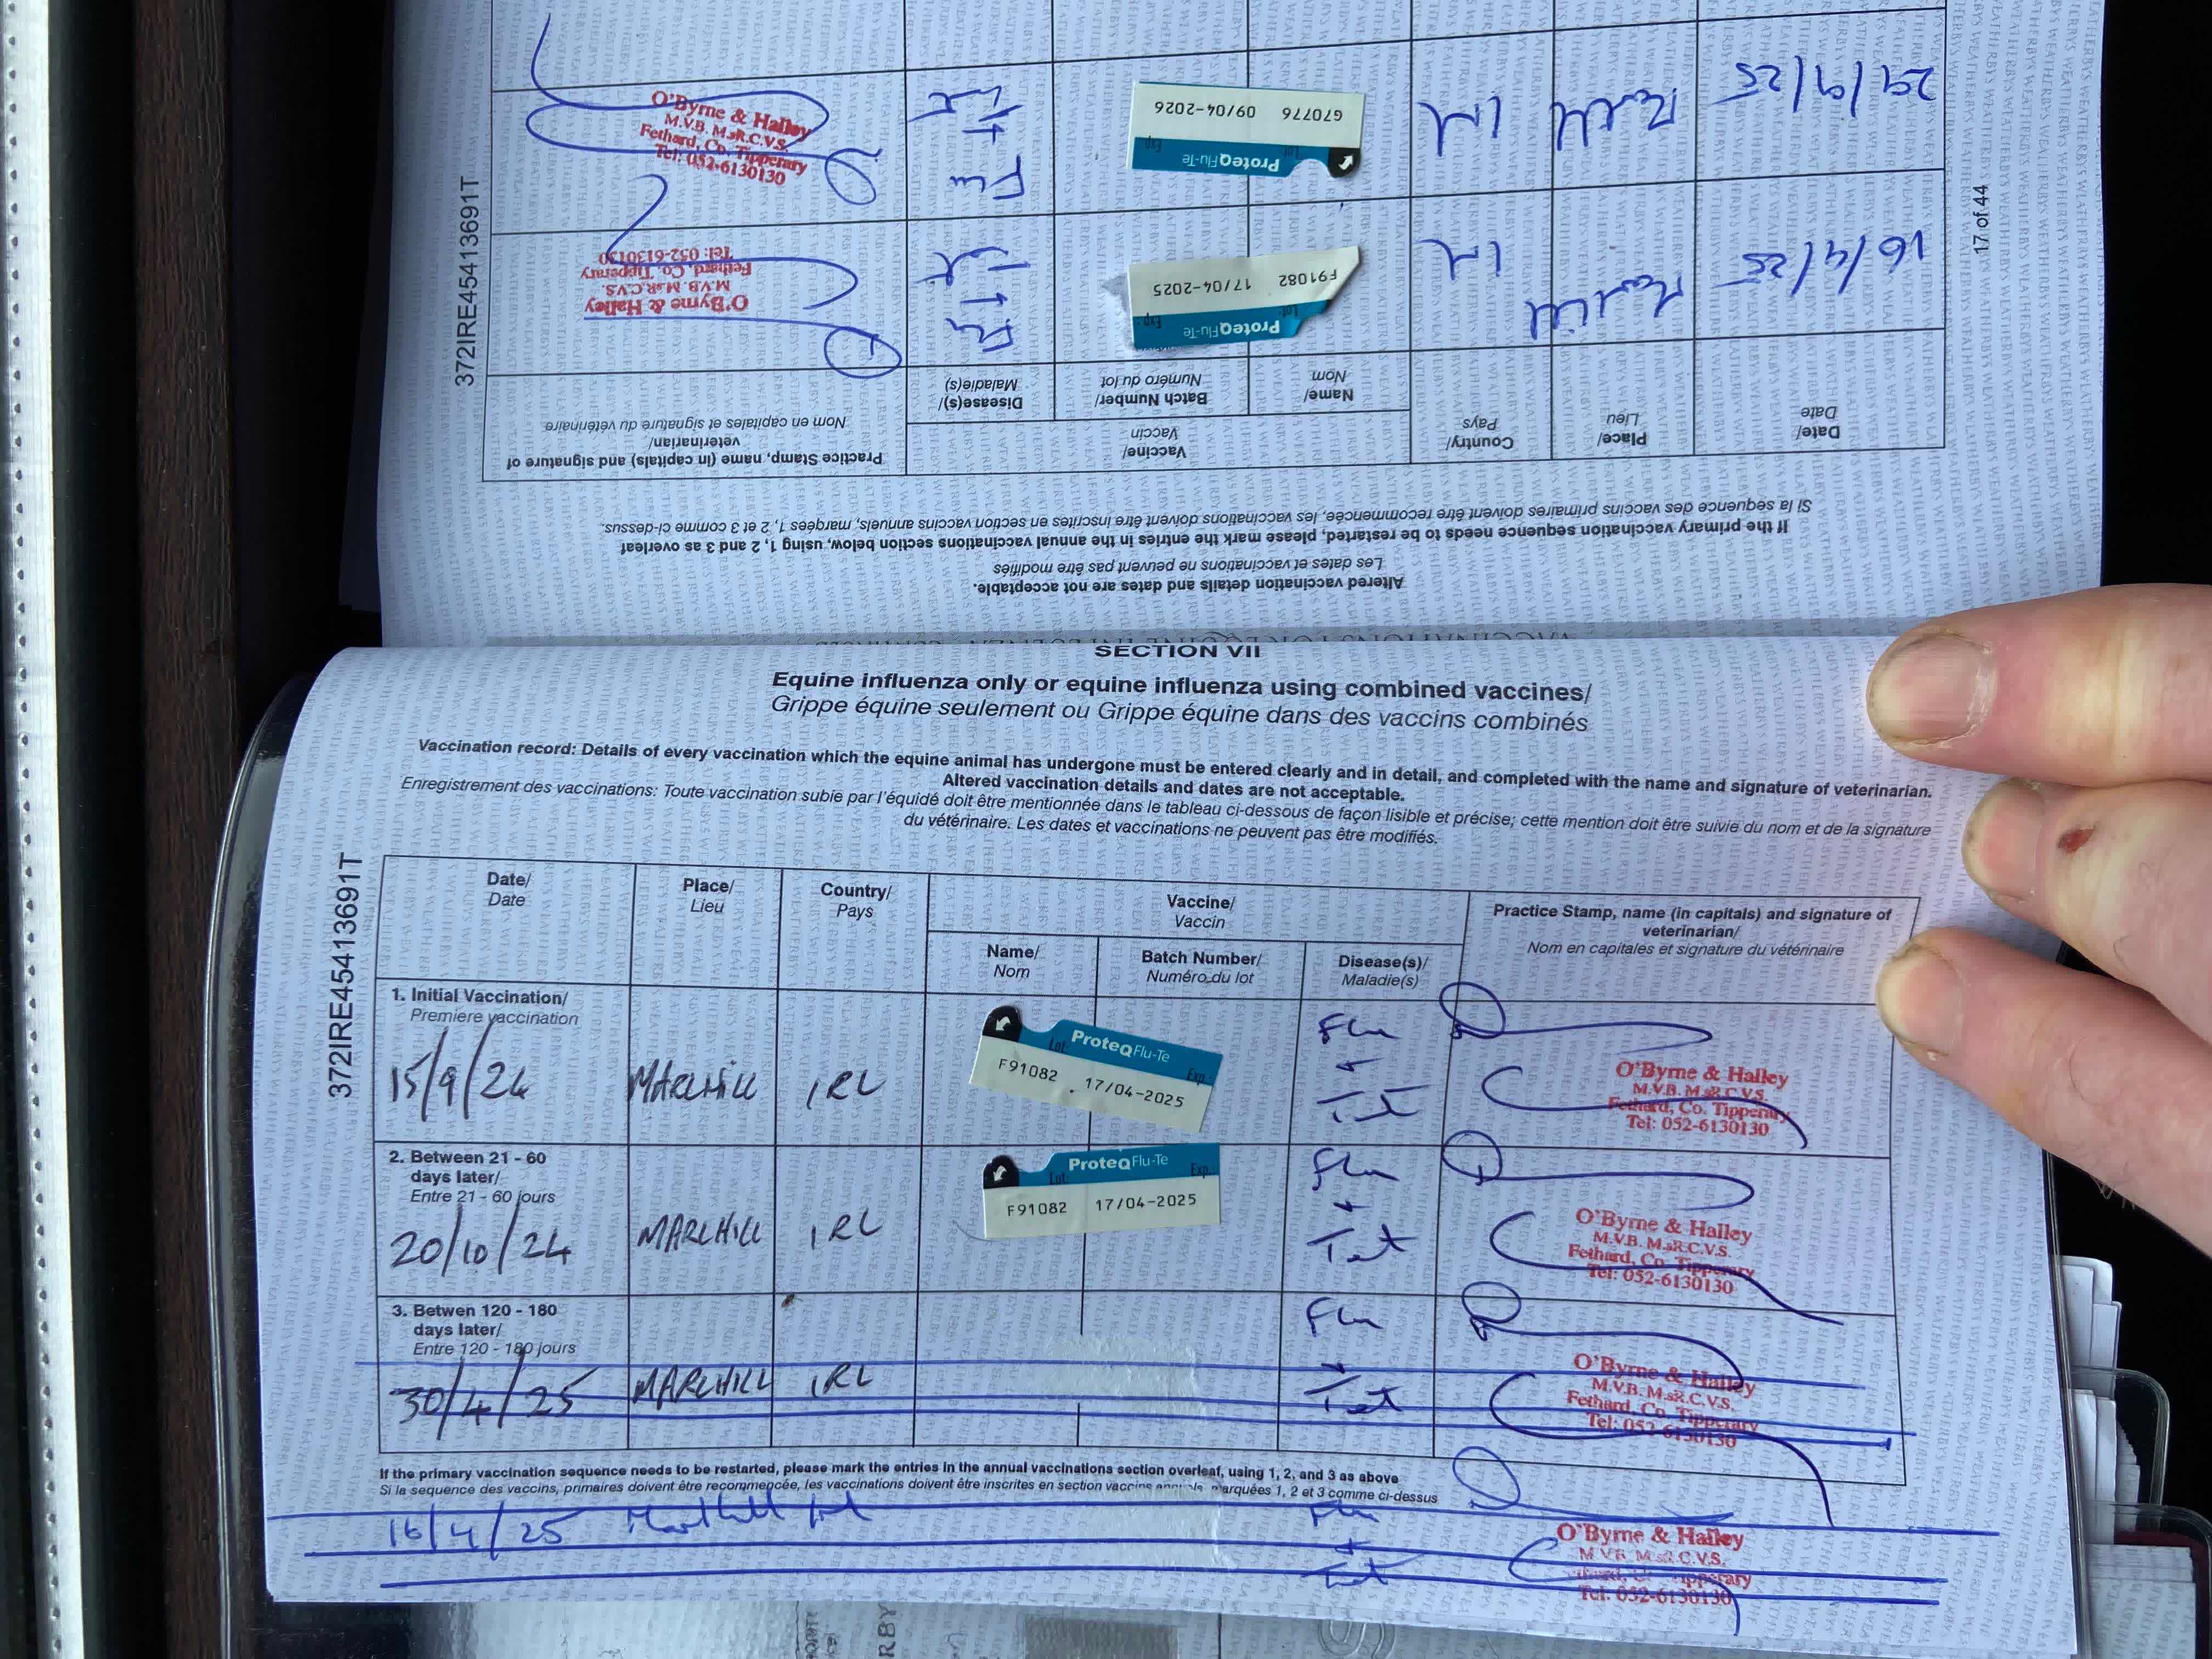 SECTION VII
Equine influenza only or equine influenza using combined vaccines/
Grippe équine seulement ou Grippe équine dans des vaccins combinés
Vaccination record: Details of every vaccination which the equine animal has undergone must be entered clearly and in detail, and completed with the name and signature of veterinarian.
Altered vaccination details and dates are not acceptable.
Enregistrement des vaccinations: Toute vaccination subie par l'équidé doit être mentionnée dans le tableau ci-dessous de façon lisible et précise; cette mention doit être suivie du nom et de la signature
du vétérinaire. Les dates et vaccinations ne peuvent pas être modifiés.
372IRE45413691T
Date/
Date
Place/
Lieu
Country/
Pays
Vaccine/
Vaccin
Name/
Nom
Batch Number/
Numéro du lot
Disease(s)/
Maladie(s)
Practice Stamp, name (in capitals) and signature of
veterinarian/
Nom en capitales et signature du vétérinaire
1. Initial Vaccination/
Premiere vaccination
15/9/24 MARLHILL IRL
ProteqFlu-Te
Lot: Exp.:
F91082 17/04-2025
Flu
+
Tet
O'Byrne & Halley
M.V.B. M.sR.C.V.S.
Fethard, Co. Tipperary
Tel: 052-6130130
2. Between 21 - 60
days later/
Entre 21 - 60 jours
20/10/24 MARLHILL IRL
ProteqFlu-Te
Lot: Exp.:
F91082 17/04-2025
Flu
+
Tet
O'Byrne & Halley
M.V.B. M.sR.C.V.S.
Fethard, Co. Tipperary
Tel: 052-6130130
3. Betwen 120 - 180
days later/
Entre 120 - 180 jours
30/4/25 MARLHILL IRL
Flu
+
Tet
O'Byrne & Halley
M.V.B. M.sR.C.V.S.
Fethard, Co. Tipperary
Tel: 052-6130130
If the primary vaccination sequence needs to be restarted, please mark the entries in the annual vaccinations section overleaf, using 1, 2, and 3 as above
Si la sequence des vaccins, primaires doivent être recomencée, les vaccinations doivent être inscrites en section vaccins annuels, marquées 1, 2 et 3 comme ci-dessus
16/4/25 Marlhill Irl
Flu
+
Tet
O'Byrne & Halley
M.V.B. M.sR.C.V.S.
Tipperary
Tel: 052-6130130
Altered vaccination details and dates are not acceptable.
Les dates et vaccinations ne peuvent pas être modifiés
If the primary vaccination sequence needs to be restarted, please mark the entries in the annual vaccinations section below, using 1, 2 and 3 as overleaf
Si la sequence des vaccins primaires doivent être recomencée, les vaccinations doivent être inscrites en section vaccins annuels, marqées 1, 2 et 3 comme ci-dessus.
Date/
Date
Place/
Lieu
Country/
Pays
Vaccine/
Vaccin
Name/
Nom
Batch Number/
Numéro du lot
Disease(s)/
Maladie(s)
Practice Stamp, name (in capitals) and signature of
veterinarian/
Nom en capitales et signature du vétérinaire
16/4/25 Marlhill Irl
ProteqFlu-Te
Lot: Exp.:
F91082 17/04-2025
Flu
+
Tet
O'Byrne & Halley
M.V.B. M.sR.C.V.S.
Fethard, Co. Tipperary
Tel: 052-6130130
29/9/25 Marlhill Irl
ProteqFlu-Te
Lot: Exp.:
G70776 09/04-2026
Flu
+
Tet
O'Byrne & Halley
M.V.B. M.sR.C.V.S.
Fethard, Co. Tipperary
Tel: 052-6130130
372IRE45413691T
17 of 44